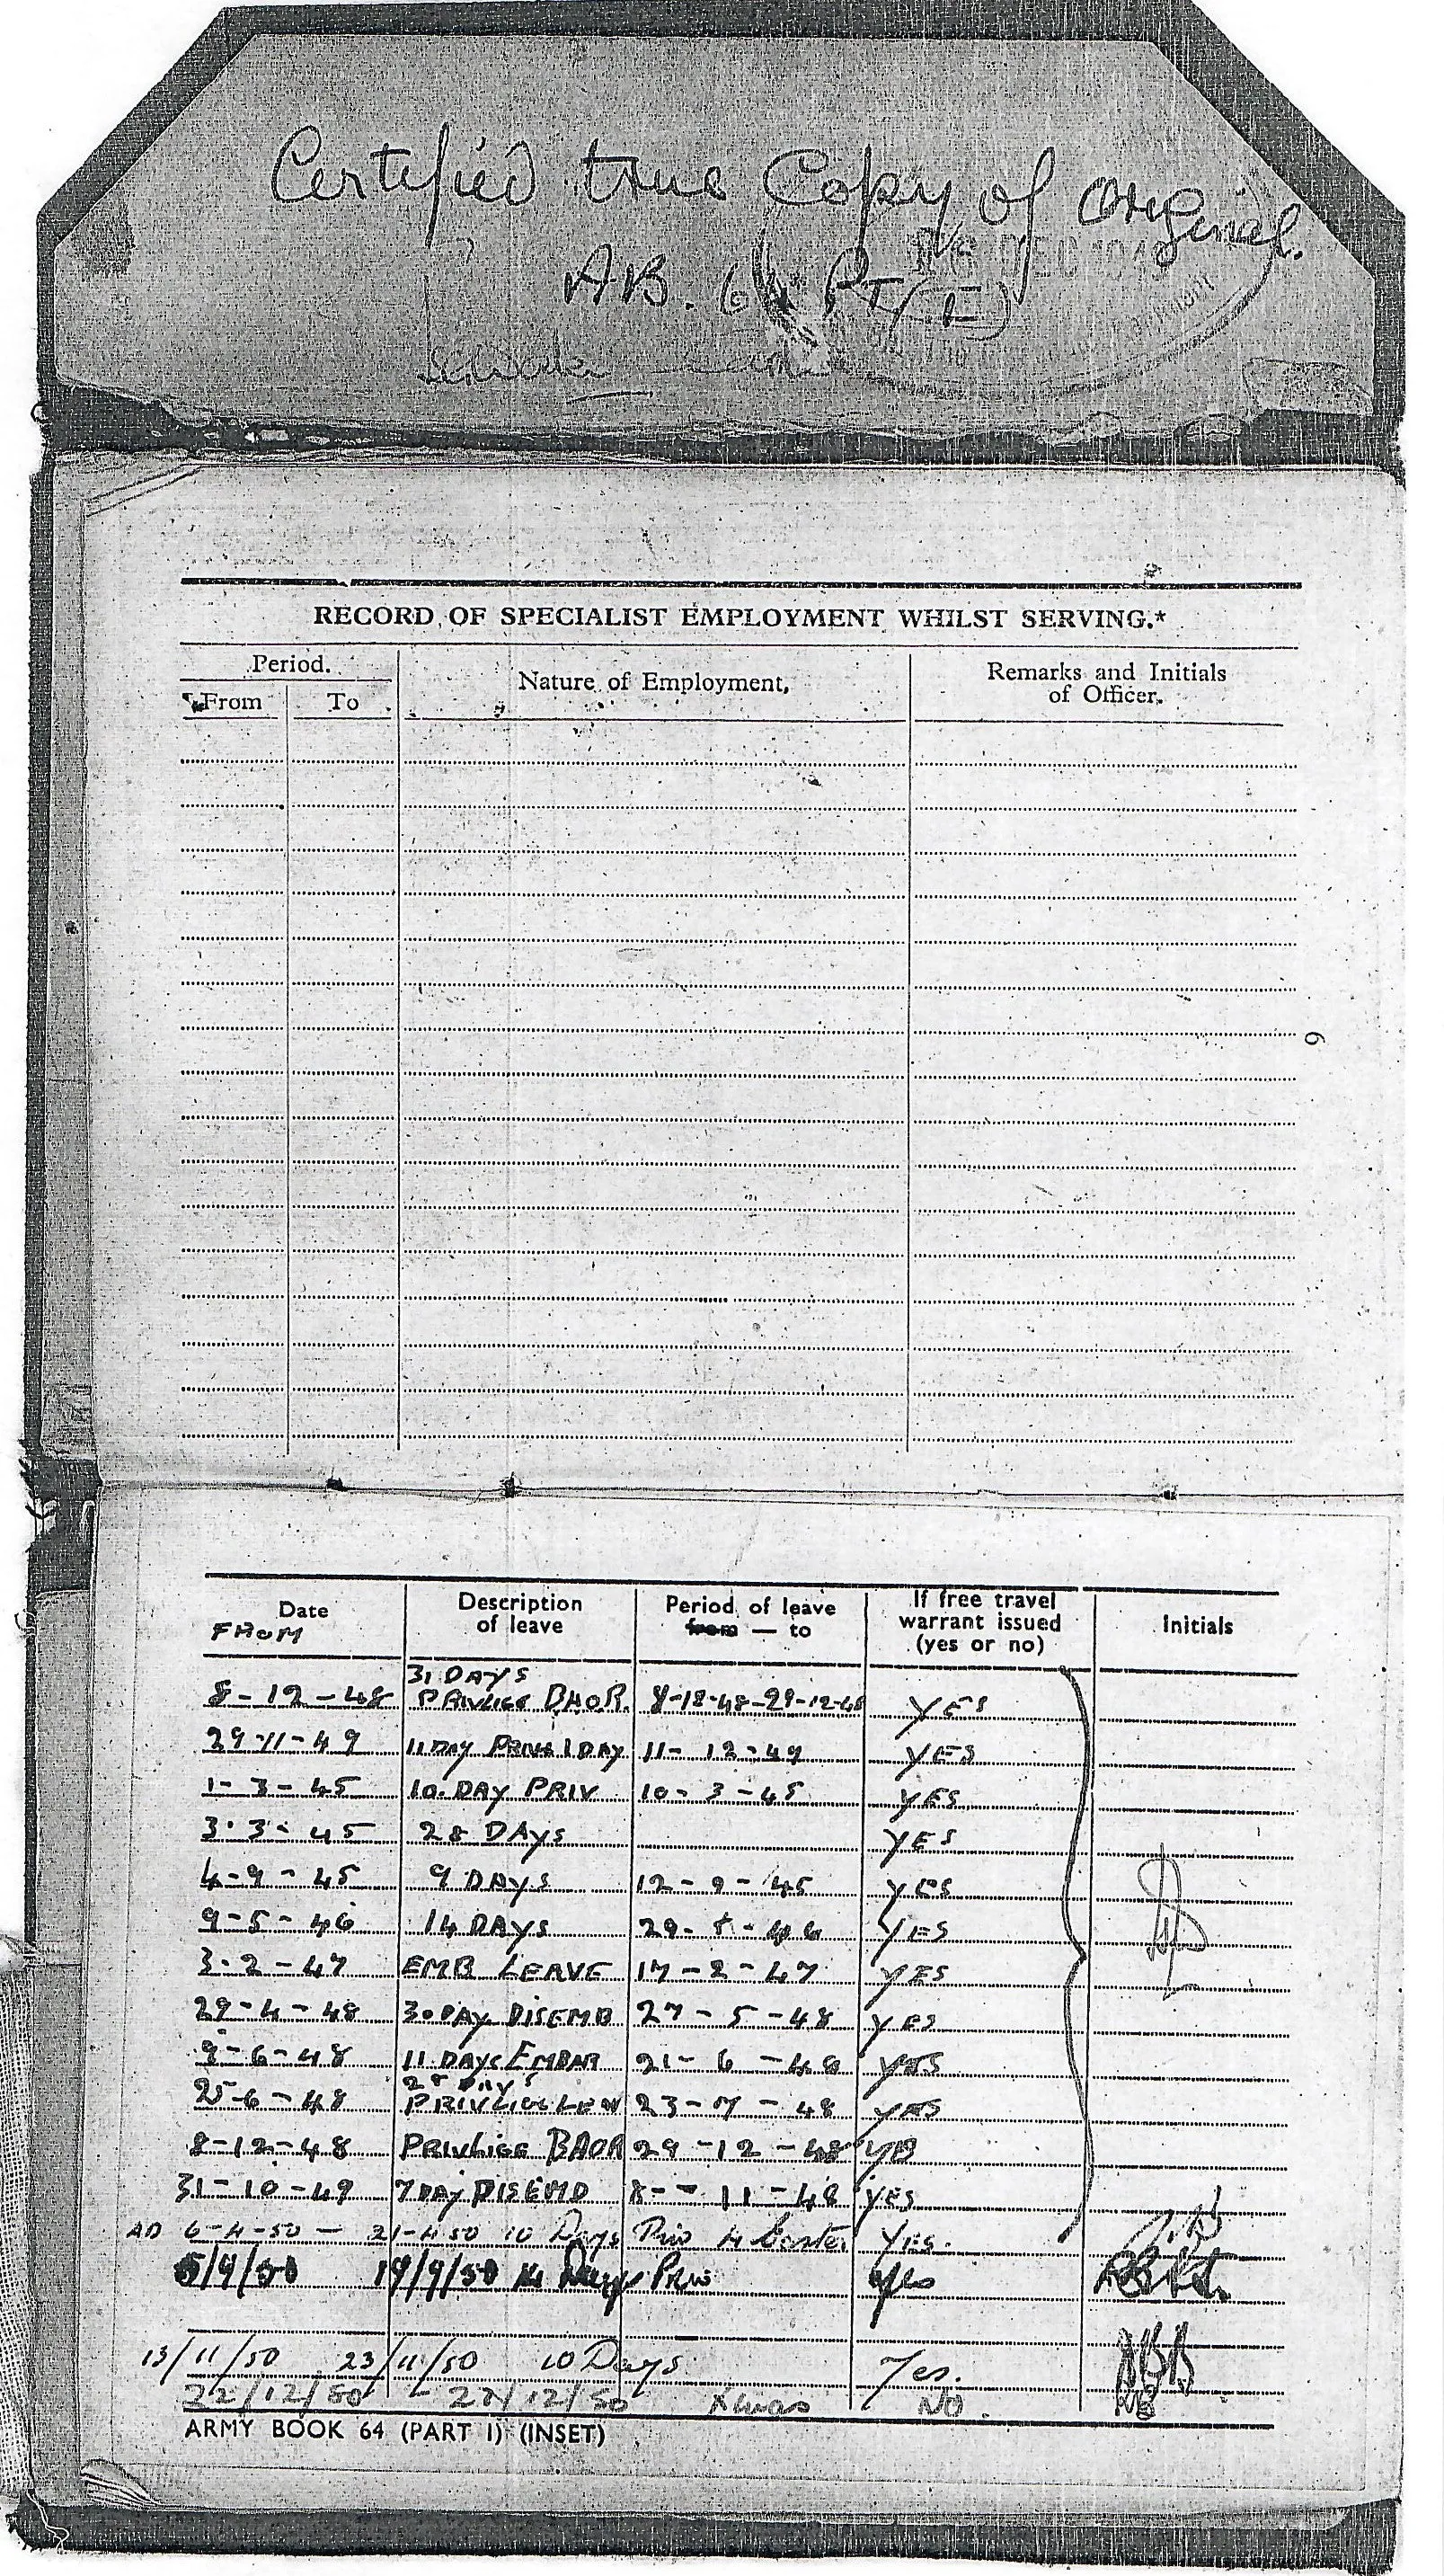 Certified true Copy of Original.
AB. 64 Pt (I)
DEC 194
RECORD OF SPECIALIST EMPLOYMENT WHILST SERVING.*
Period. Nature of Employment, Remarks and Initials of Officer.
From To
6
Date Description of leave Period of leave from — to If free travel warrant issued (yes or no) Initials
FROM
31 DAYS
8-12-48 PRIVLIGE B.A.O.R. 8-12-48-29-12-48 YES
29-11-49 11 DAY PRIV 1 DAY 11-12-49 YES
1-3-45 10. DAY PRIV 10-3-45 YES
3.3-45 28 DAYS YES
4-9-45 9 DAYS 12-9-45 YES
9-5-46 14 DAYS 29-5-46 YES
3-2-47 EMB LEAVE 17-2-47 YES
29-4-48 30 DAY DISEMB 27-5-48 YES
9-6-48 11 DAYS EMBAR 21-6-48 YES
28 DAYS
25-6-48 PRIVLIGE 23-7-48 YES
8-12-48 PRIVLIGE BAOR 29-12-48 YES
31-10-49 7 DAY DISEMB 8--11-48 YES
AD 6-4-50 — 21-4-50 10 Days Priv 4 Easter YES.
5/9/50 19/9/50 14 Days Priv Yes
13/11/50 23/11/50 10 Days Yes.
22/12/50 - 27/12/50 Xmas NO.
ARMY BOOK 64 (PART I) (INSET)